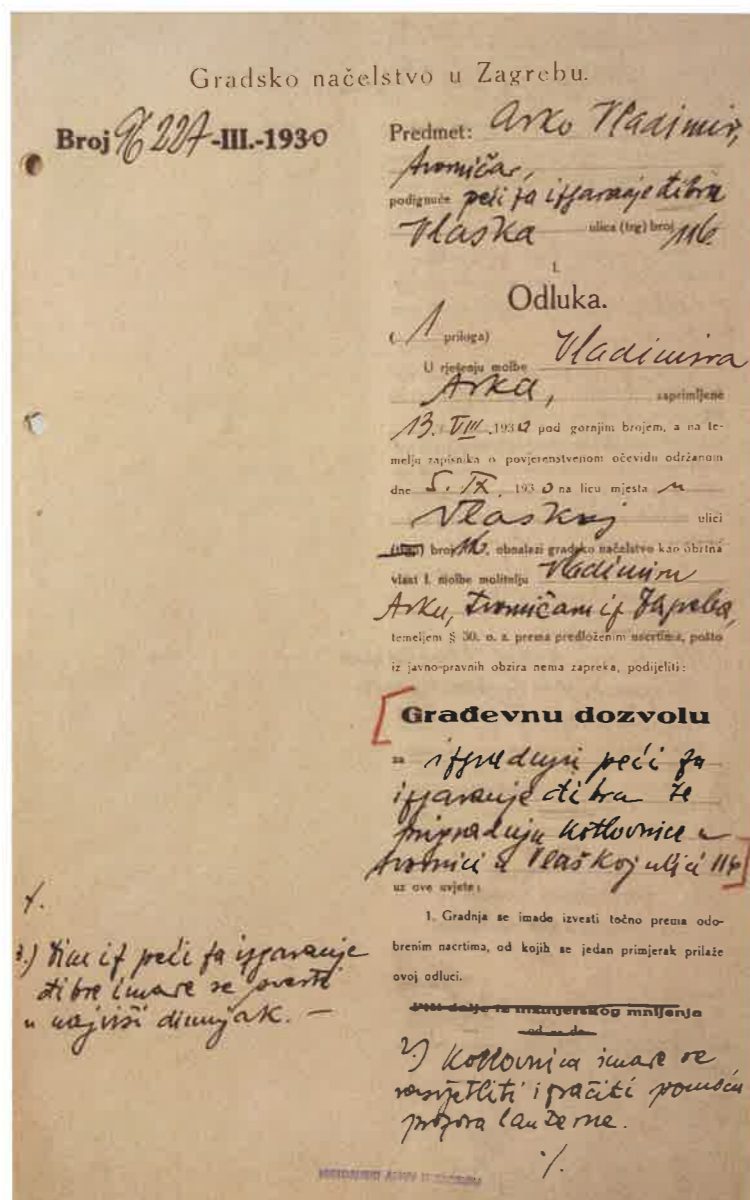 Gradsko načelstvo u Zagrebu.
Broj 96227-III.-1930
Predmet: Arko Vladimir,
tvorničar,
podignuće peći za izgaranje džibre
Vlaška ulica (trg) broj 116
I.
Odluka.
( 1 priloga)
U rješenju molbe Vladimira
Arka, zaprimljene
13. VIII. 1930 pod gornjim brojem, a na te-
melju zapisnika o povjerenstvenom očevidu održanom
dne 5. IX. 1930 na licu mjesta u
Vlaškoj ulici
(trgu) broj 116, obnalazi gradsko načelstvo kao obrtna
vlast I. molbe molitelju Vladimiru
Arku, tvorničaru iz Zagreba,
temeljem § 30. o. z. prema predloženim nacrtima, pošto
iz javno-pravnih obzira nema zapreka, podijeliti:
Građevnu dozvolu
za izgradnju peći za
izgaranje džibre te
prigradnju kotlovnice u
tvornici u Vlaškoj ulici 116
uz ove uvjete:
1. Gradnja se imade izvesti točno prema odo-
brenim nacrtima, od kojih se jedan primjerak prilaže
ovoj odluci.
mnijenja
2.) Kotlovnica imade se
rasvjetliti i zračiti pomoću
prozora lanterne.
·/.
·/.
3.) Dim iz peći za izgaranje
džibre imade se svesti
u najviši dimnjak. —